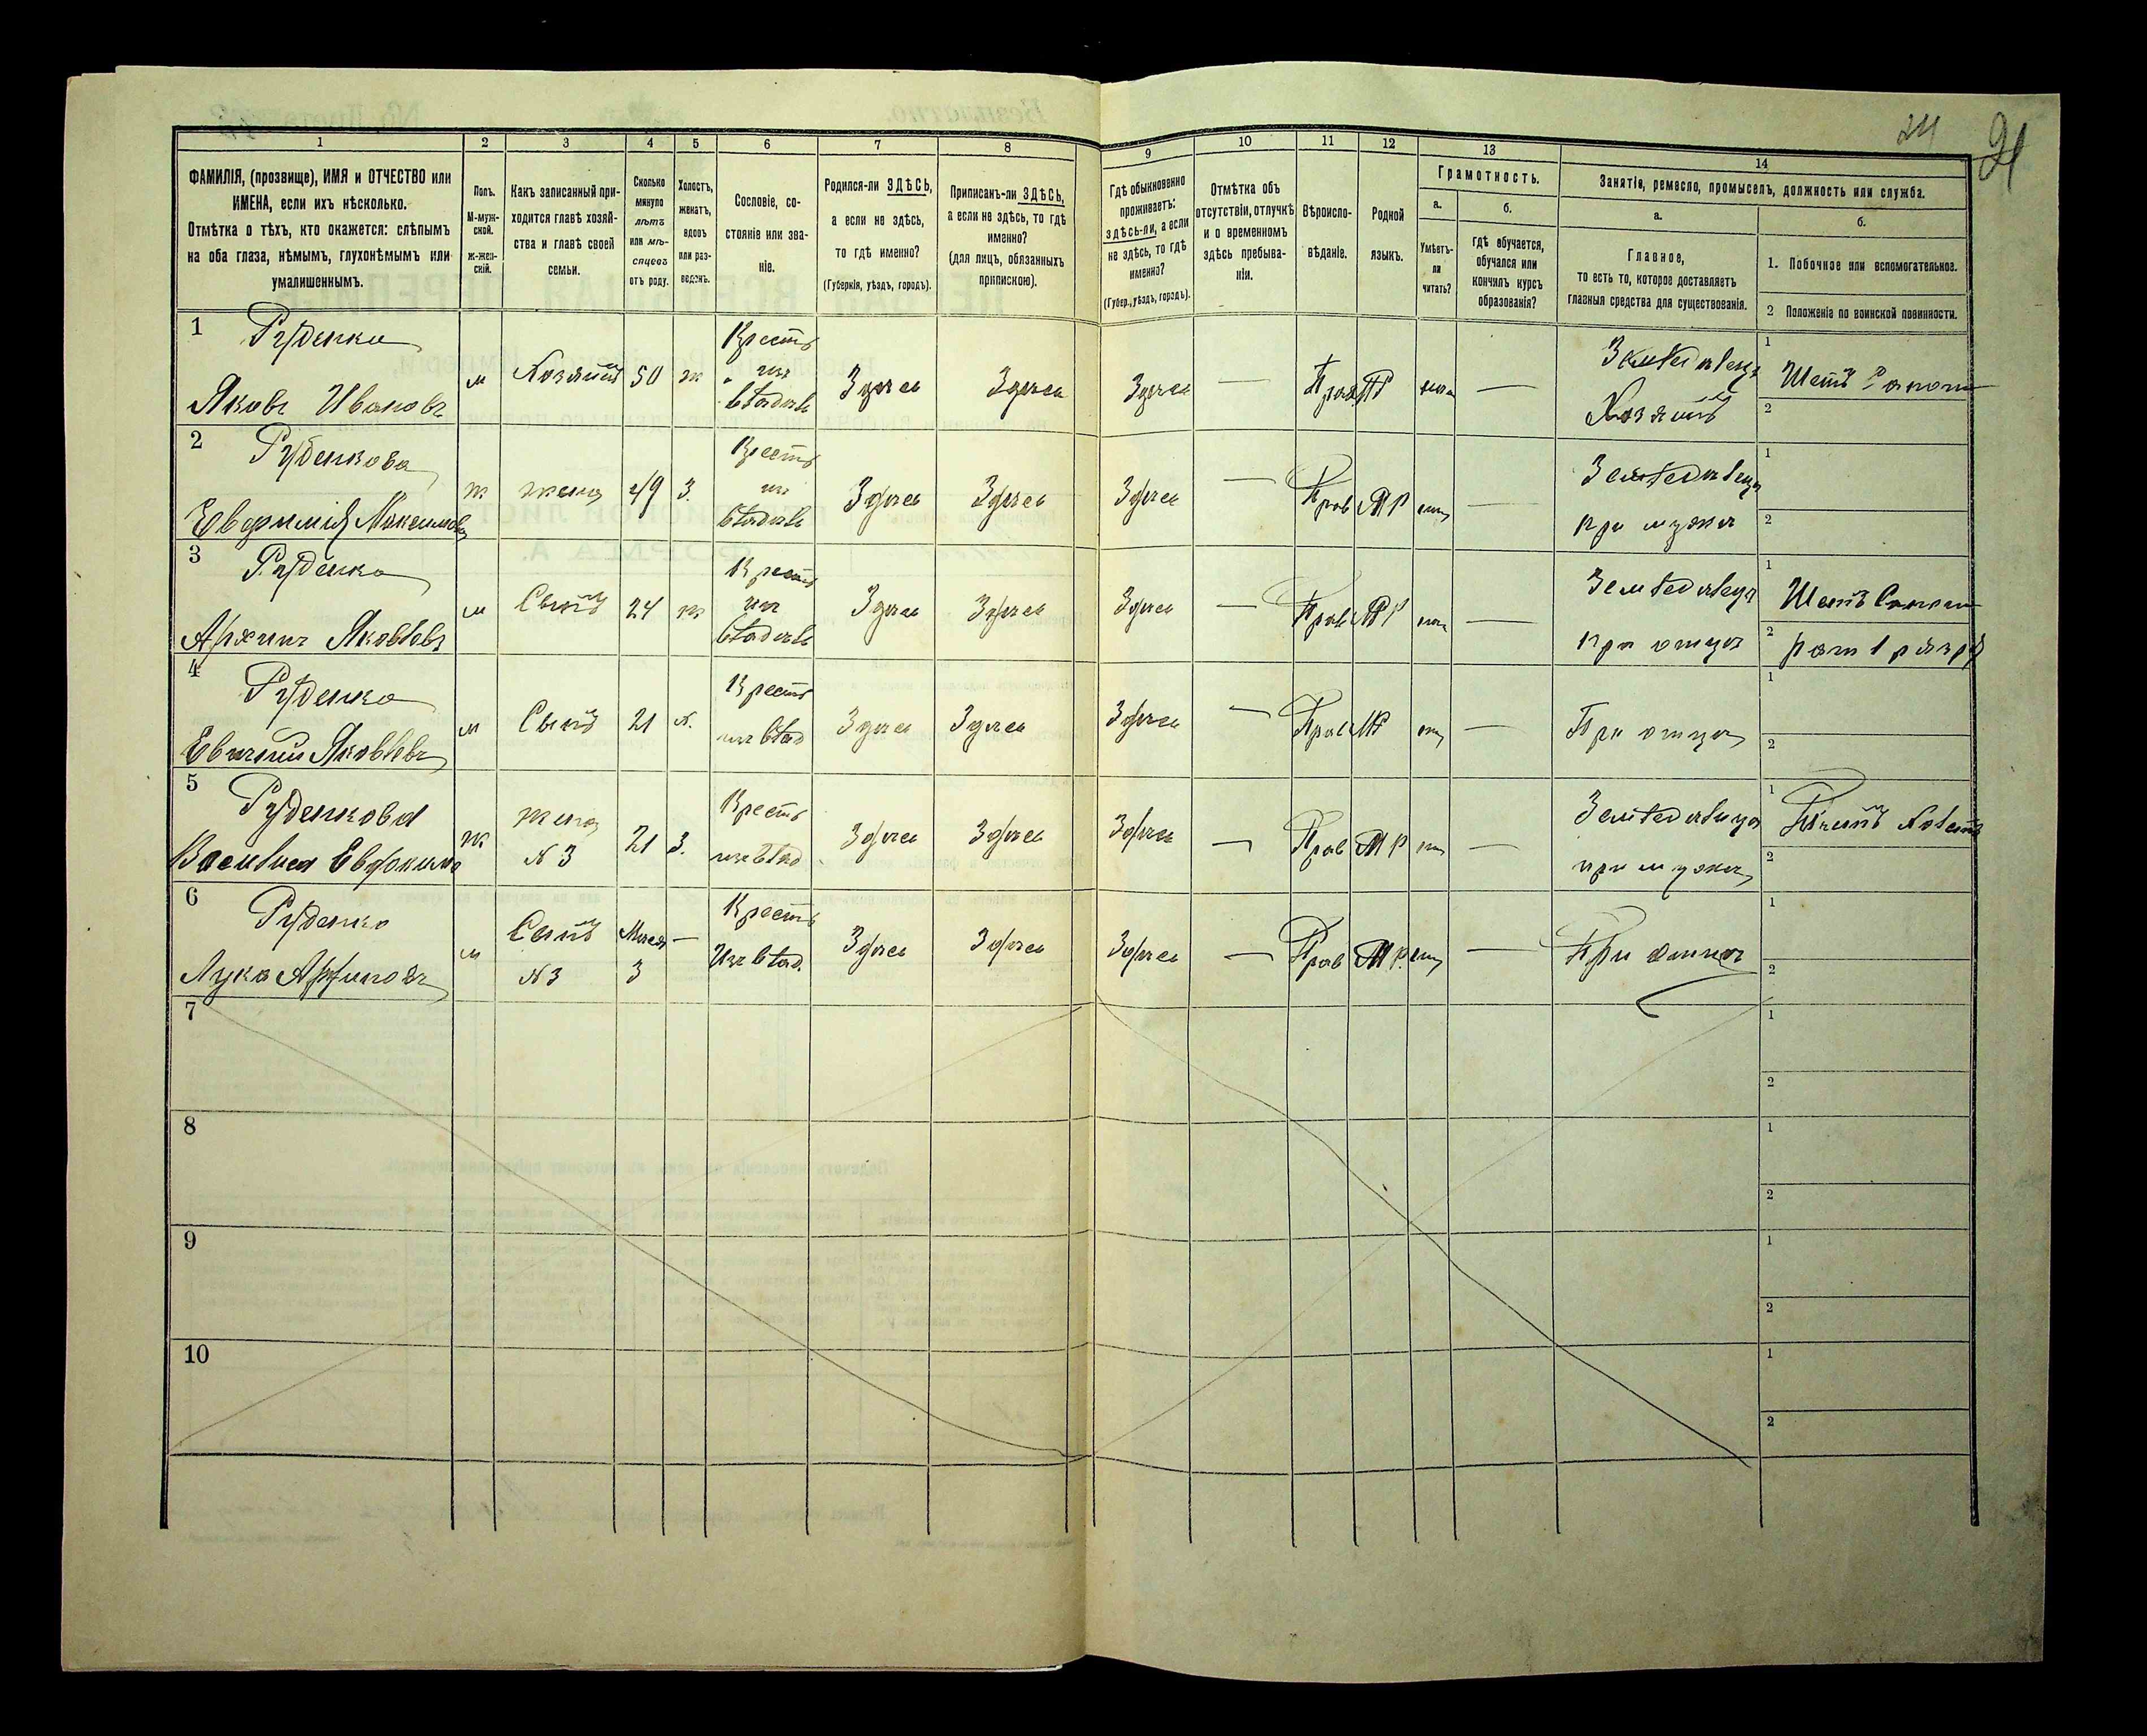 24 21
1 2 3 4 5 6 7 8 9 10 11 12 13 14
ФАМИЛІЯ, (прозвище), ИМЯ и ОТЧЕСТВО или
ИМЕНА, если ихъ нѣсколько.
Отмѣтка о тѣхъ, кто окажется: слѣпымъ
на оба глаза, нѣмымъ, глухонѣмымъ или
умалишеннымъ.
Полъ.
М-муж-
ской.
ж-жен-
скій.
Какъ записанный при-
ходится главѣ хозяй-
ства и главѣ своей
семьи.
Сколько
минуло
лѣтъ
или мѣ-
сяцевъ
отъ роду.
Холостъ,
женатъ,
вдовъ
или раз-
веденъ.
Сословіе, со-
стояніе или зва-
ніе.
Родился-ли ЗДѢСЬ,
а если не здѣсь,
то гдѣ именно?
(Губернія, уѣздъ, городъ).
Приписанъ-ли ЗДѢСЬ,
а если не здѣсь, то гдѣ
именно?
(для лицъ, обязанныхъ
припискою).
Гдѣ обыкновенно
проживаетъ:
здѣсь-ли, а если
не здѣсь, то гдѣ
именно?
(Губер., уѣздъ, городъ).
Отмѣтка объ
отсутствіи, отлучкѣ
и о временномъ
здѣсь пребыва-
ніи.
Вѣроиспо-
вѣданіе.
Родной
языкъ.
Грамотность.
а.
Умѣетъ-
ли
читать?
б.
гдѣ обучается,
обучался или
кончилъ курсъ
образованія?
Занятіе, ремесло, промыселъ, должность или служба.
а.
Главное,
то есть то, которое доставляетъ
главныя средства для существованія.
б.
1. Побочное или вспомогательное.
2 Положеніе по воинской повинности.
1 Руденко
Яковъ Ивановъ
м Хозяинъ 50 ж
Крестъ
из
владел
Здѣсь Здѣсь Здѣсь — Прав МР —
Земледелец
Хозяинъ
1
2
2 Руденкова
Евфимия Максимов
ж жена 49 з.
Крестъ
из
владел
Здѣсь Здѣсь Здѣсь — Прав МР —
Земледелец
при муже
1
2
3 Руденко
Архип Яковлевъ
м Сынъ 24 ж
Крестъ
из
владел
Здѣсь Здѣсь Здѣсь — Прав МР —
Земледелец
при отце
1
2 рат 1 разр
4 Руденко
Евгений Яковлевъ
м Сынъ 21 х.
Крестъ
из влад
Здѣсь Здѣсь Здѣсь — Прав МР —
При отце
1
2
5 Руденкова
Василиса Евдоким
ж жена
N 3
21 з.
Крестъ
из влад.
Здѣсь Здѣсь Здѣсь — Прав МР —
Земледелица
при муже
1
2
6 Руденко
Лука Архиповъ
м Сынъ
N 3
Месяц
3
—
Крестъ
Из влад.
Здѣсь Здѣсь Здѣсь — Прав МР. —
При отце
1
2
7
1
2
8
1
2
9
1
2
10
1
2